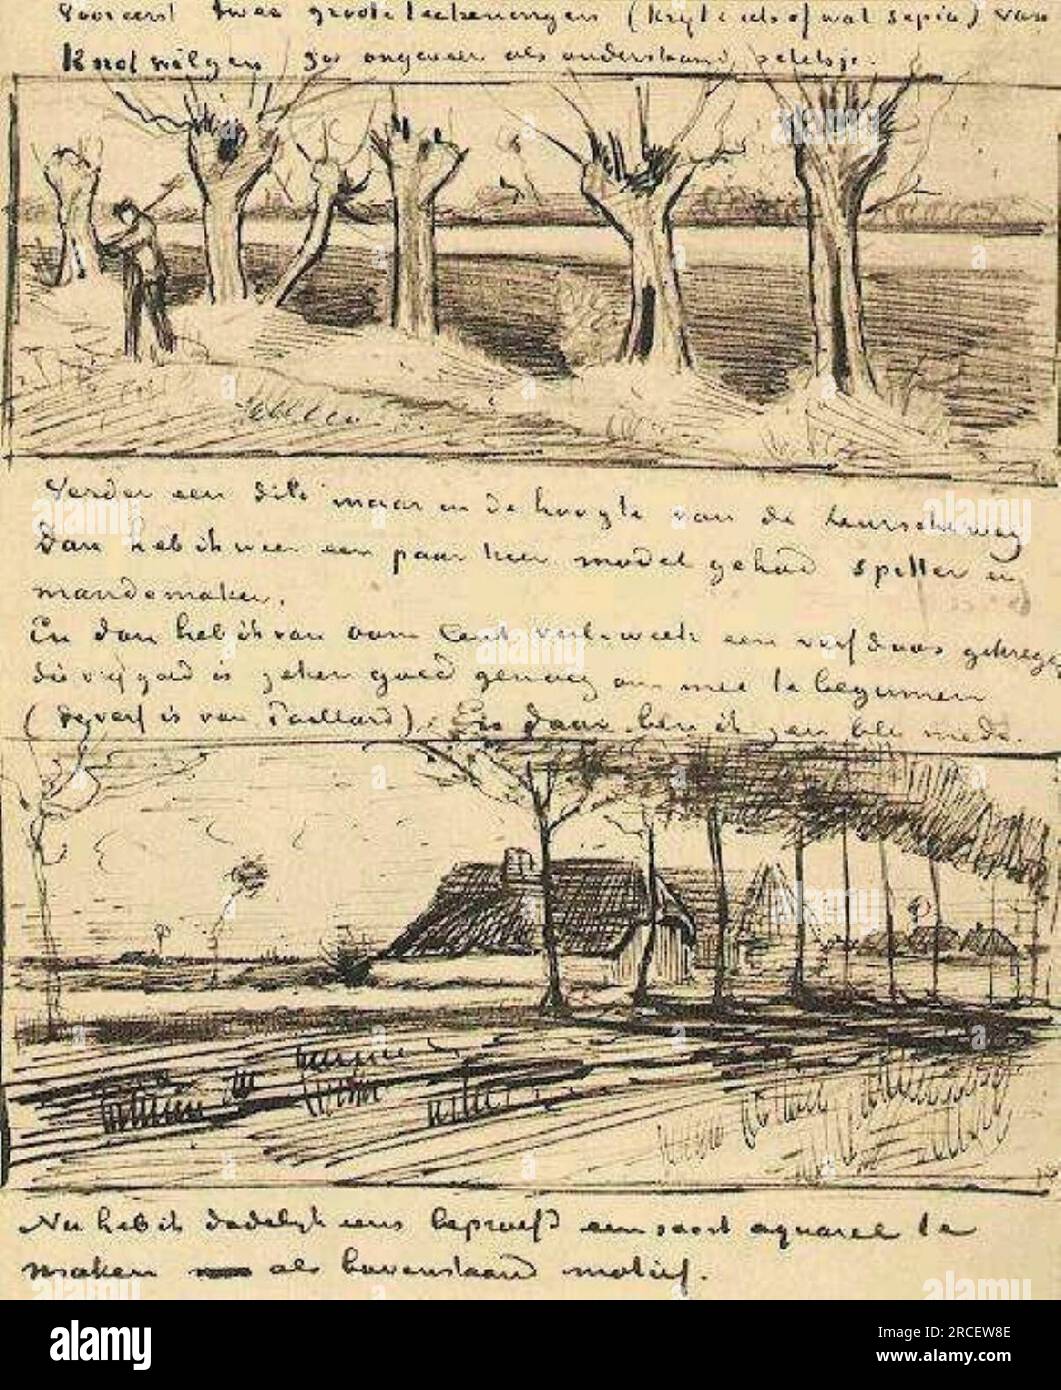 Vooreerst twee groote teekeningen (krijt en iets of wat sepia) van
Knotwilgen zoo ongeveer als onderstaand krabbeltje.
Verder een dito maar in de hoogte van de Leurscheweg
Dan heb ik weer een paar keer model gehad spitter en
mandemaker.
En dan heb ik van oom Cent verl. week een verfdoos gekregen
die vrij goed is zeker goed genoeg om mee te beginnen
(de verf is van Paillard). En daar ben ik zeer blij mede.
Nu heb ik dadelijk eens beproefd een soort aquarel te
maken als bovenstaand motief.
alamy
alamy
Image ID: 2RCEW8E
www.alamy.com